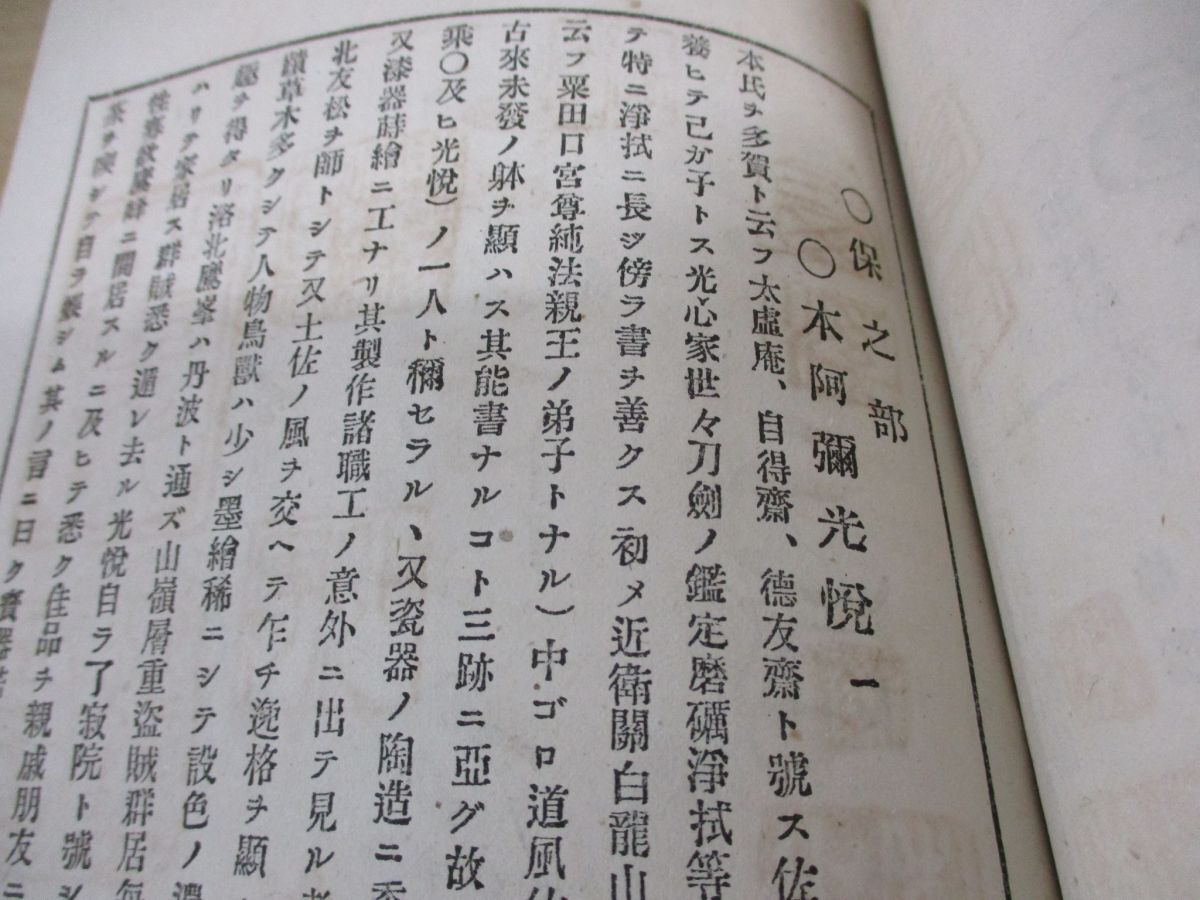 〇保之部
〇本阿彌光悅一
本氏ヲ多賀ト云フ太虛庵、自得齋、德友齋ト號ス佐
養ヒテ己カ子トス光心家世々刀劍ノ鑑定磨礪淨拭等
テ特ニ淨拭ニ長ジ傍ラ書ヲ善クス初メ近衛關白龍山
云フ粟田口宮尊純法親王ノ弟子トナル)中ゴロ道風佐
古來未發ノ躰ヲ顯ハス其能書ナルコト三跡ニ亞グ故
乘〇及ヒ光悅)ノ一人ト稱セラル、又瓷器ノ陶造ニ
又漆器蒔繪ニ工ナリ其製作諸職工ノ意外ニ出テ見ル者
北友松ヲ師トシテ又土佐ノ風ヲ交ヘテ乍チ逸格ヲ顯
讚草木多クシテ人物鳥獸ハ少シ墨繪稀ニシテ設色ノ濃
趣ヲ得タリ洛北鷹峯ハ丹波ト通ズ山嶺層重盜賊群居
ハリテ家居ス群賊悉ク遁レ去ル光悅自ラ了寂院ト號シ
ニ閑居スルニ及ヒテ悉ク佳品ヲ親戚朋友ニ
茶ヲ シテ自ラ シム其ノ言ニ曰ク寶器